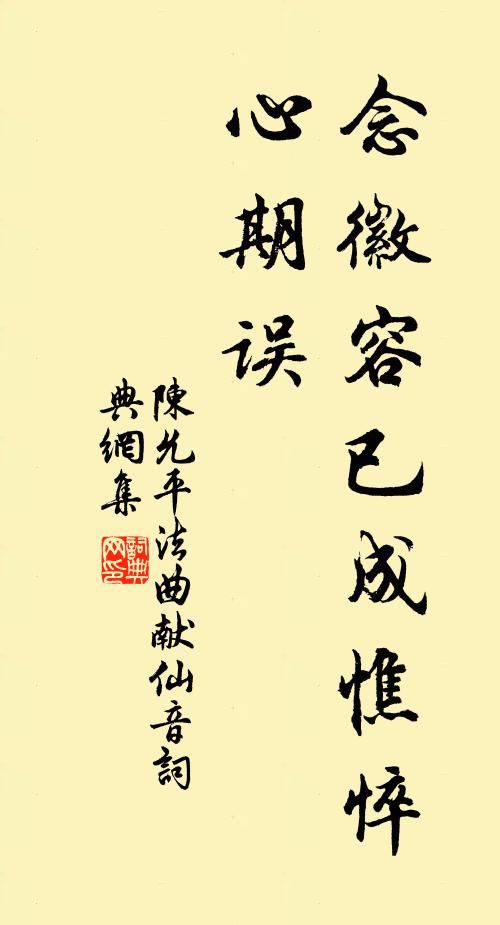 念徽容已成憔悴
心期误
陳允平法曲献仙音詞
典網集
詞典网印